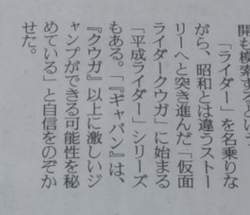 開も模索するという。
「ライダー」を名乗りな
がら、昭和とは違うストー
リーへと突き進んだ「仮面
ライダークウガ」に始まる
「平成ライダー」シリーズ
もある。「『ギャバン』は、
『クウガ』以上に激しいジ
ャンプができる可能性を秘
めている」と自信をのぞか
せた。